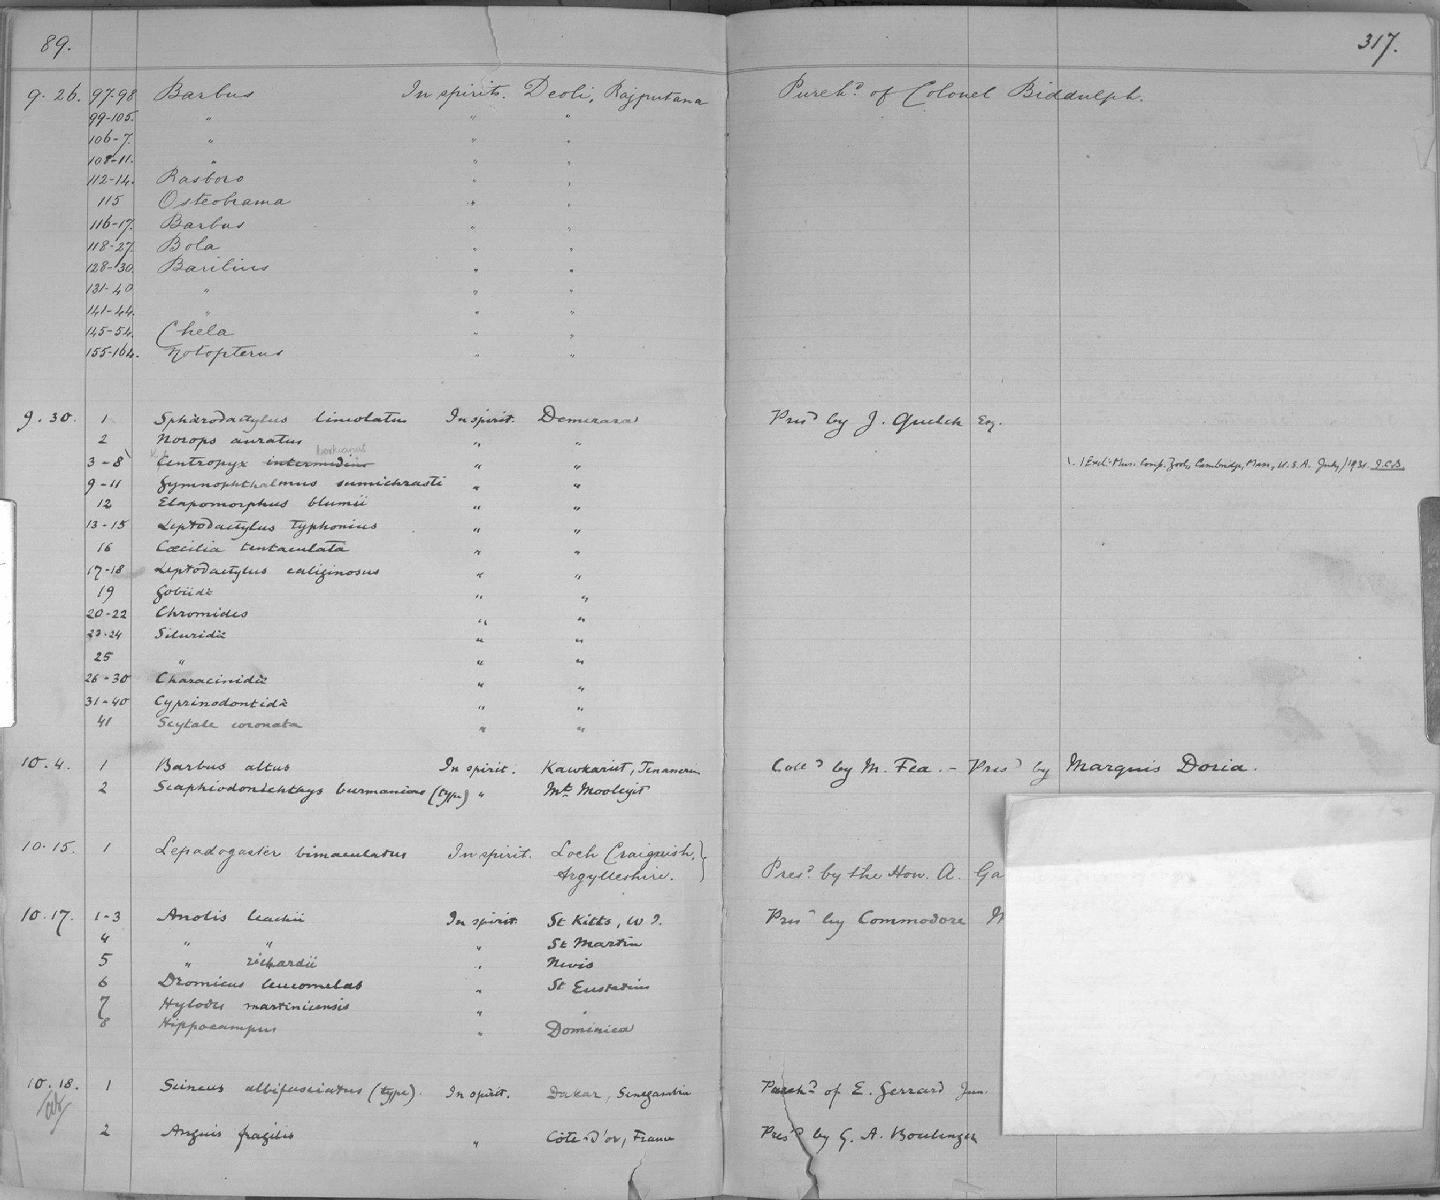 89. 317.
9. 26. 97-98 Barbus In spirits. Deoli, Rajputana Purchd of Colonel Biddulph.
99-105. " " "
106-7. " " "
108-11. " " "
112-14. Rasboro " "
115 Osteobrama " "
116-17. Barbus " "
118-27. Bola " "
128-30. Barilius " "
131-40 " " "
141-44. " " "
145-54. Chela " "
155-164. Notopterus " "
9. 30. 1 Sphærodactylus lineolatus In spirit. Demerara Presd by J. Quelch Esq.
2 Norops auratus " "
3-8 Centropyx intermedius " " Exch. Mus. Comp. Zool., Cambridge, Mass, U.S.A. July, 1931.
9-11 Gymnophthalmus sumichrasti " "
12 Elapomorphus blumii " "
13-15 Leptodactylus typhonius " "
16 Cæcilia tentaculata " "
17-18 Leptodactylus caliginosus " "
19 Gobiidæ " "
20-22 Chromides " "
23-24 Siluridæ " "
25 " " "
26-30 Characinidæ " "
31-40 Cyprinodontidæ " "
41 Scytale coronata " "
10. 4. 1 Barbus altus In spirit. Kawkariet, Tenasserim Colld by M. Fea. - Presd by Marquis Doria.
2 Scaphiodonichthys burmanicus (type) " Mt Mooleyit
10. 15. 1 Lepadogaster bimaculatus In spirit. Loch Craignish,
Argylleshire. Presd by the Hon. A. Ga
10. 17. 1-3 Anolis leachii In spirit. St Kitts, W I. Presd by Commodore
4 " " " St Martin
5 " richardii " Nevis
6 Dromicus leucomelas " St Eustatius
7 Hylodes martinicensis " "
8 Hippocampus " Dominica
10. 18. 1 Scincus albifasciatus (type). In spirit. Dakar, Senegambia Purchd of E. Gerrard Jun.
2 Anguis fragilis " Côte d'or, France Presd by G. A. Boulenger